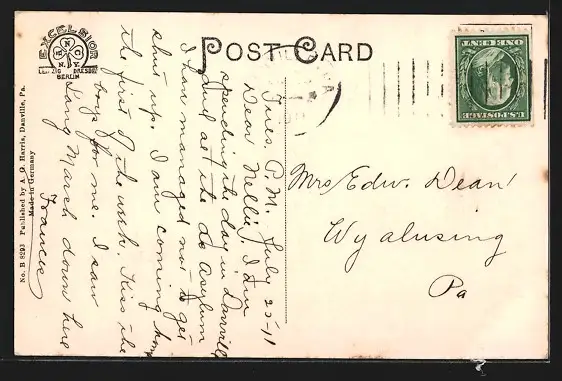 EXCELSIOR
S N C
N.Y.
LEIPZIG DRESDEN
BERLIN
POST CARD
U.S. POSTAGE
ONE CENT
No. B 8293 Published by A. G. Harris, Danville, Pa.
Made in Germany
Tues. P.M. July 25-11
Dear Nellie, I am
spending the day in Danville
and at the Asylum
I have managed not to get
shut up. I am coming home
the first of the week. Kiss the
boys for me. I saw
Long March down here
Frances
Mrs Edw. Dean
Wyalusing
Pa